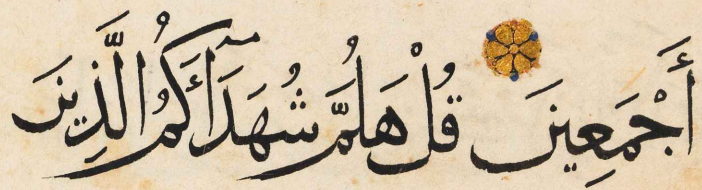 أَجْمَعِينَ قُلْ هَلُمَّ شُهَدَآءَكُمُ الَّذِينَ